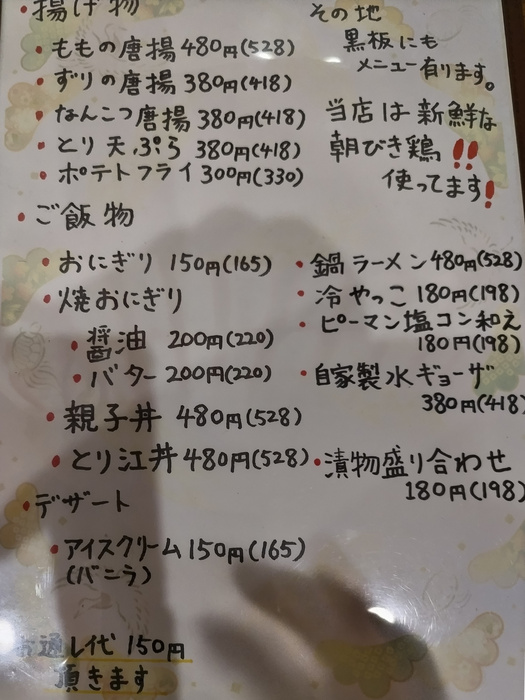 ・揚げ物
・ももの唐揚 480円(528)
・ずりの唐揚 380円(418)
・なんこつ唐揚 380円(418)
・とり天ぷら 380円(418)
・ポテトフライ 300円(330)
・ご飯物
・おにぎり 150円(165)
・焼おにぎり
・醤油 200円(220)
・バター 200円(220)
・親子丼 480円(528)
・とり江丼 480円(528)
・デザート
・アイスクリーム 150円(165)
(バニラ)
お通し代 150円
頂きます
その他
黒板にも
メニュー有ります。
当店は新鮮な
朝びき鶏!!
使ってます!
・鍋ラーメン 480円(528)
・冷やっこ 180円(198)
・ピーマン塩コン和え
180円(198)
・自家製水ギョーザ
380円(418)
・漬物盛り合わせ
180円(198)